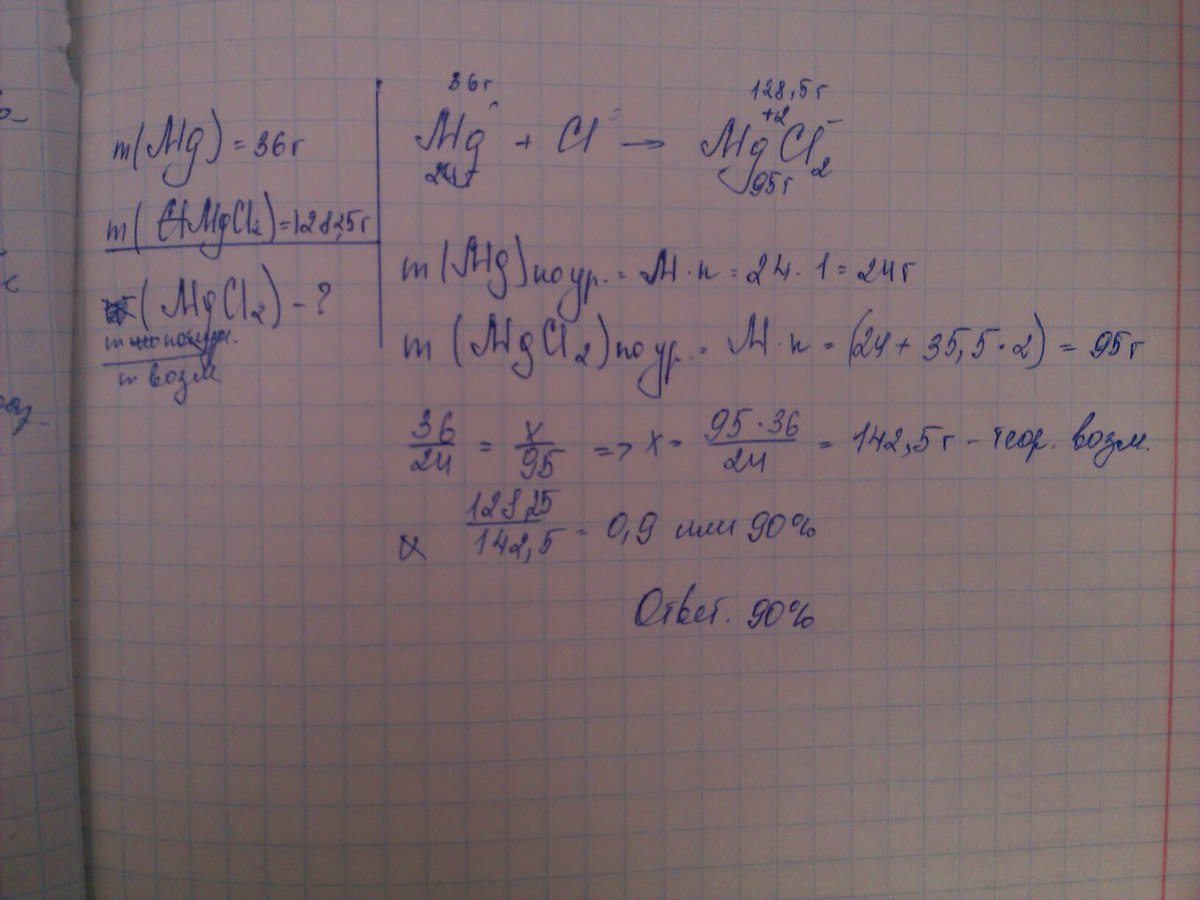 m(Mg) = 36г
m(MgCl₂) = 128,25г
(MgCl₂) - ?
m возм
36г 128,5г
Mg + Cl → Mg⁺²Cl₂⁻
24г 95г
m(Mg) по ур. = M·n = 24·1 = 24г
m(MgCl₂) по ур. = M·n = (24 + 35,5·2) = 95г
36/24 = x/95 => x = 95·36/24 = 142,5г - теор. возм.
128,25/142,5 = 0,9 или 90%
Ответ. 90%